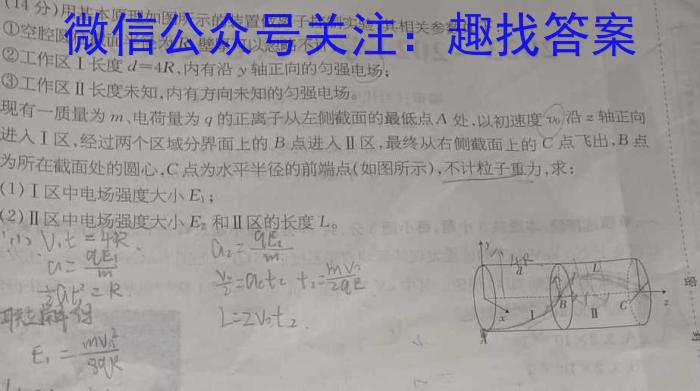 (14分)用基本原理如图所示的装置做离子控制实验,其相关参数
微信公众号关注：趣找答案
①空腔圆 面 为R,壁厚可以忽略不
②工作区Ⅰ长度d=4R,内有沿y轴正向的匀强电场;
③工作区Ⅱ长度未知,内有方向未知的匀强电场。
现有一质量为m、电荷量为q的正离子从左侧截面的最低点A处,以初速度v₀沿z轴正向
进入Ⅰ区,经过两个区域分界面上的B点进入Ⅱ区,最终从右侧截面上的C点飞出,B点
为所在截面处的圆心,C点为水平半径的前端点(如图所示),不计粒子重力,求:
(1)Ⅰ区中电场强度大小E₁;
(2)Ⅱ区中电场强度大小E₂和Ⅱ区的长度L。
(1) V₀t=4R
a=qE₁/m
½at²=R
联立解得
E₁=mv₀²/8qR
a₂=qE₂/m
v₀/2=a₂t₂ t₂=mv₀/2qE
L=2v₀t₂
y
L
B
C
z
x
Ⅰ
Ⅱ
A